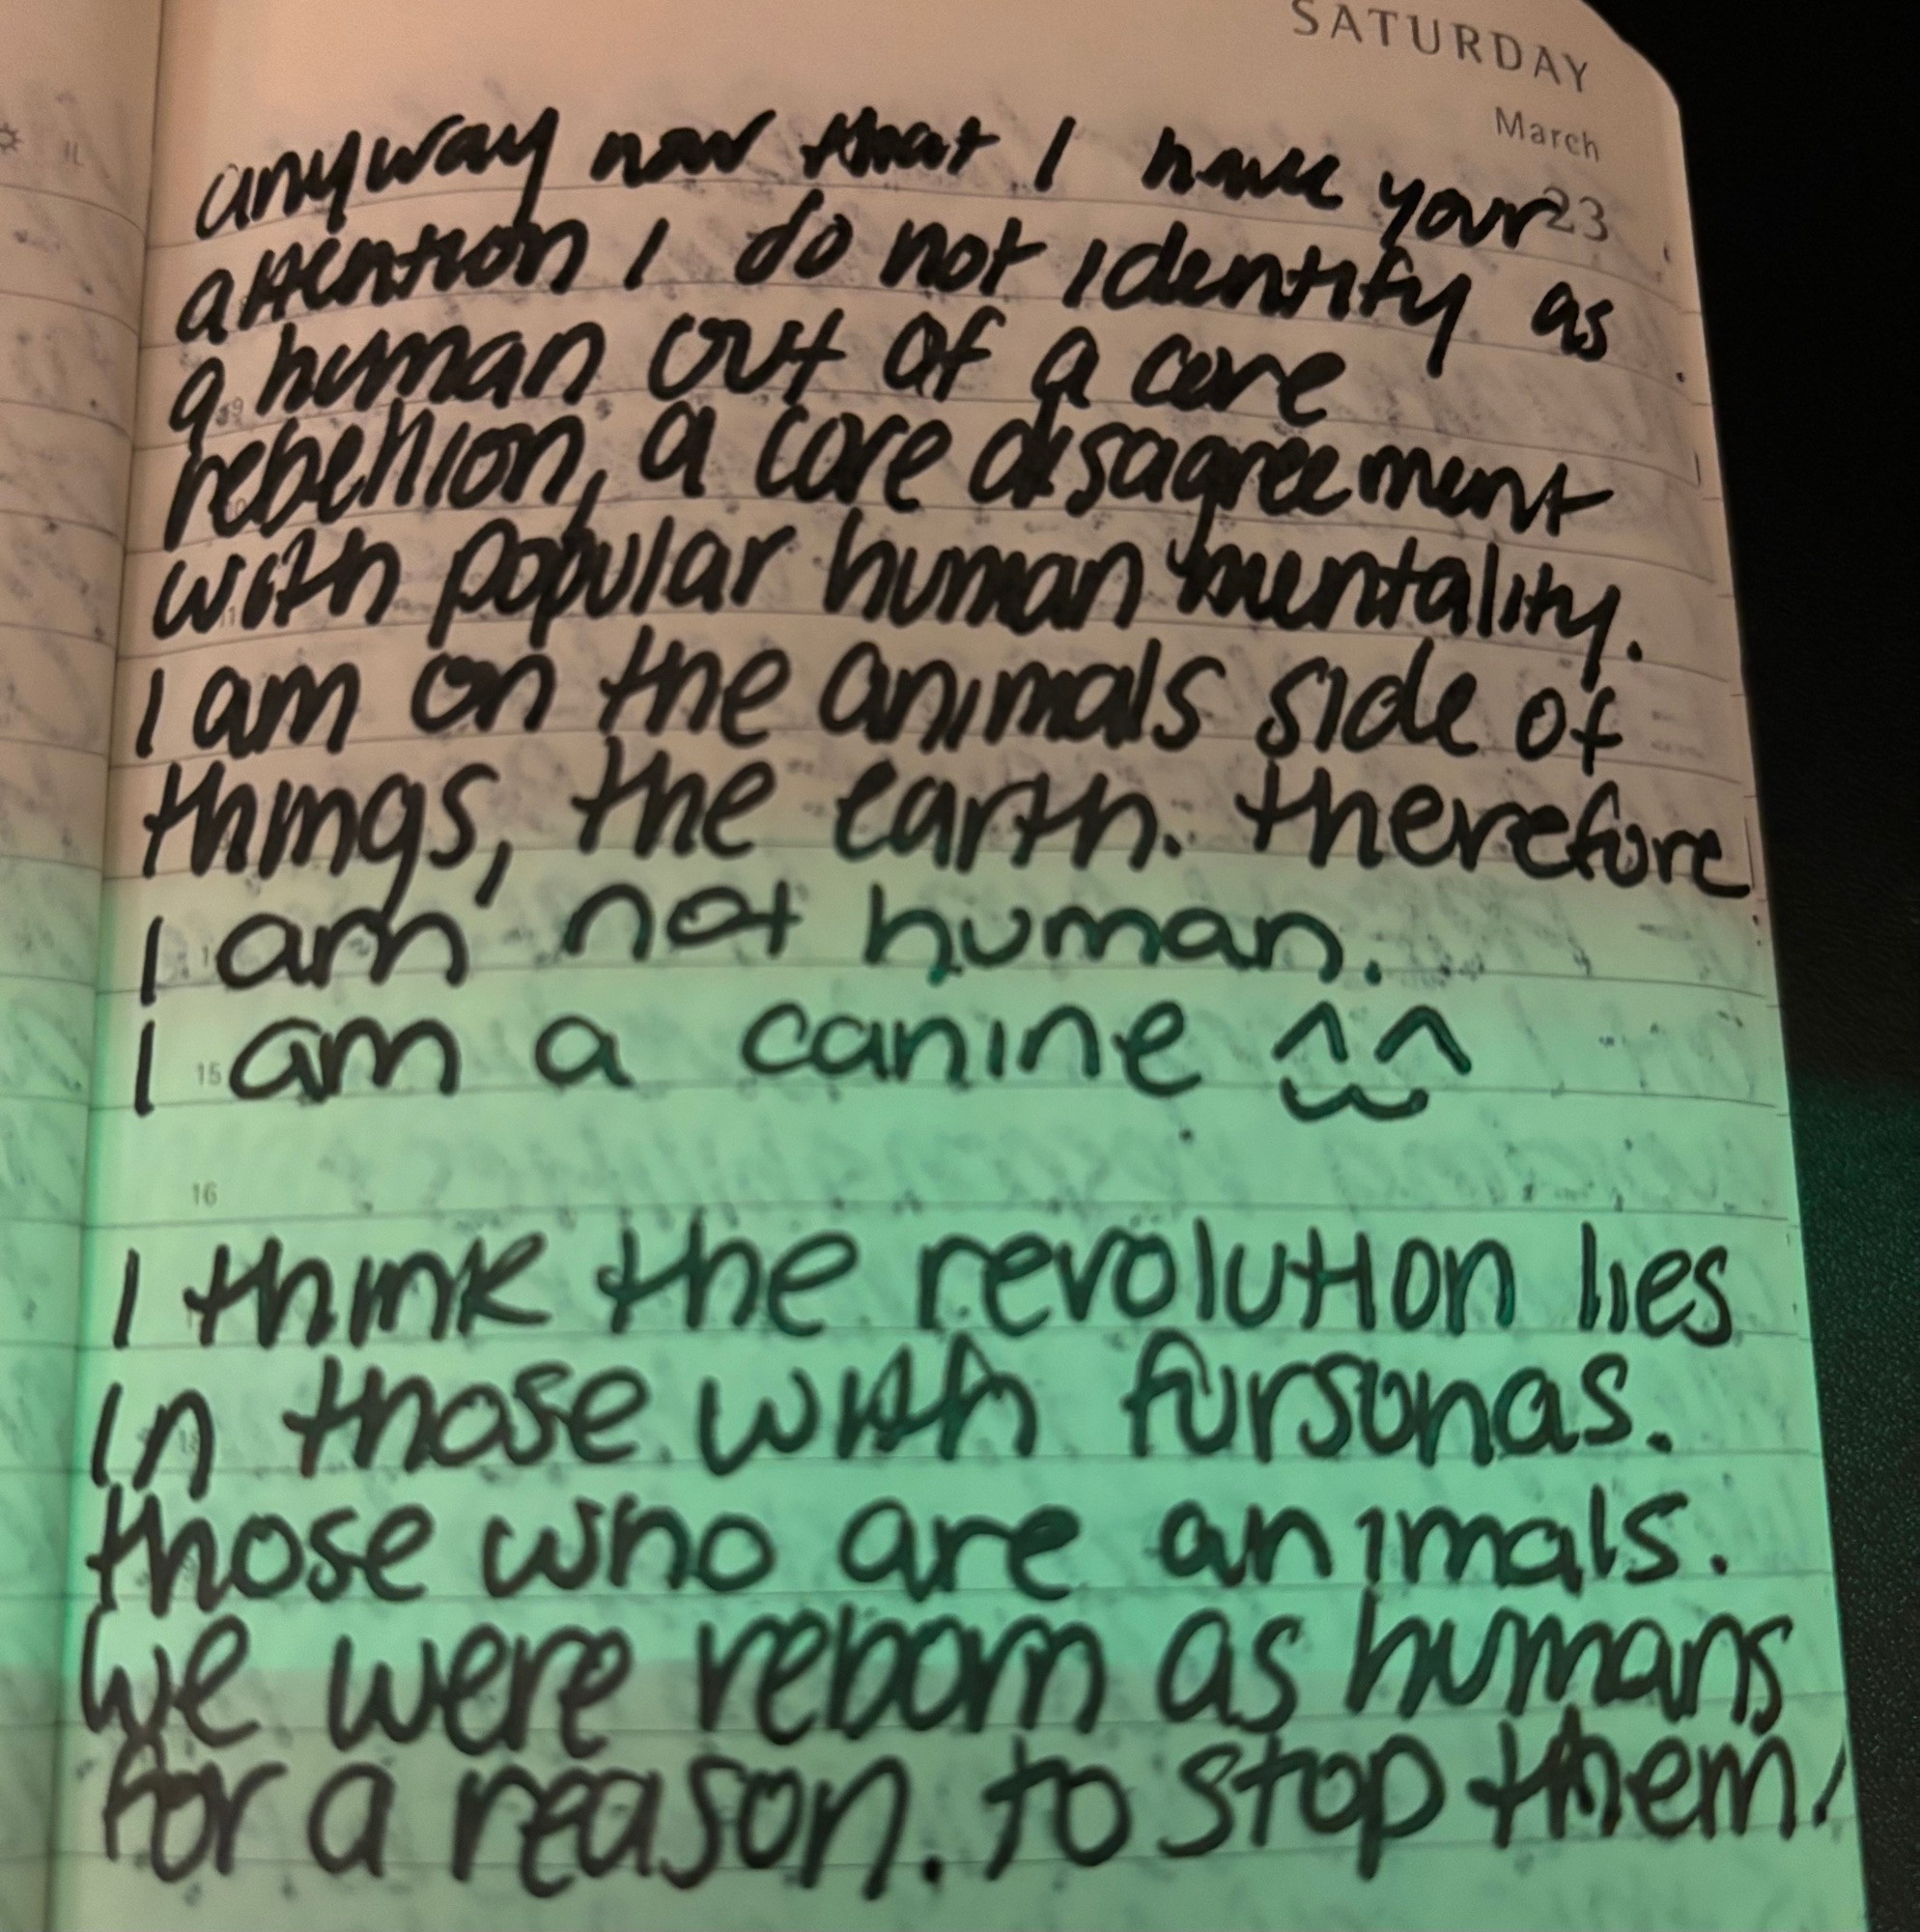 SATURDAY
March
23
anyway now that I have your
attention I do not identify as
a human out of a core
rebellion, a core disagreement
with popular human mentality.
I am on the animals side of
things, the earth. therefore
I am not human.
15
I am a canine ^^
16
I think the revolution lies
in those with fursonas.
those who are animals.
we were reborn as humans
for a reason. to stop them!